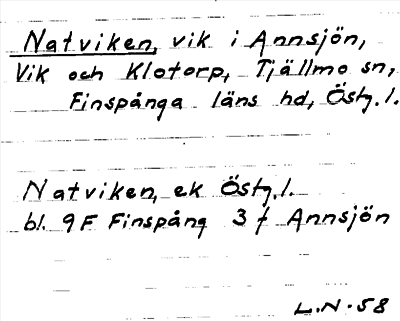 Natviken, vik i Annsjön,
Vik och Klotorp, Tjällmo sn,
Finspånga läns hd, Östg. l.
Natviken, ek Östg. l.
bl. 9F Finspång 3 f Annsjön
L.N. 58